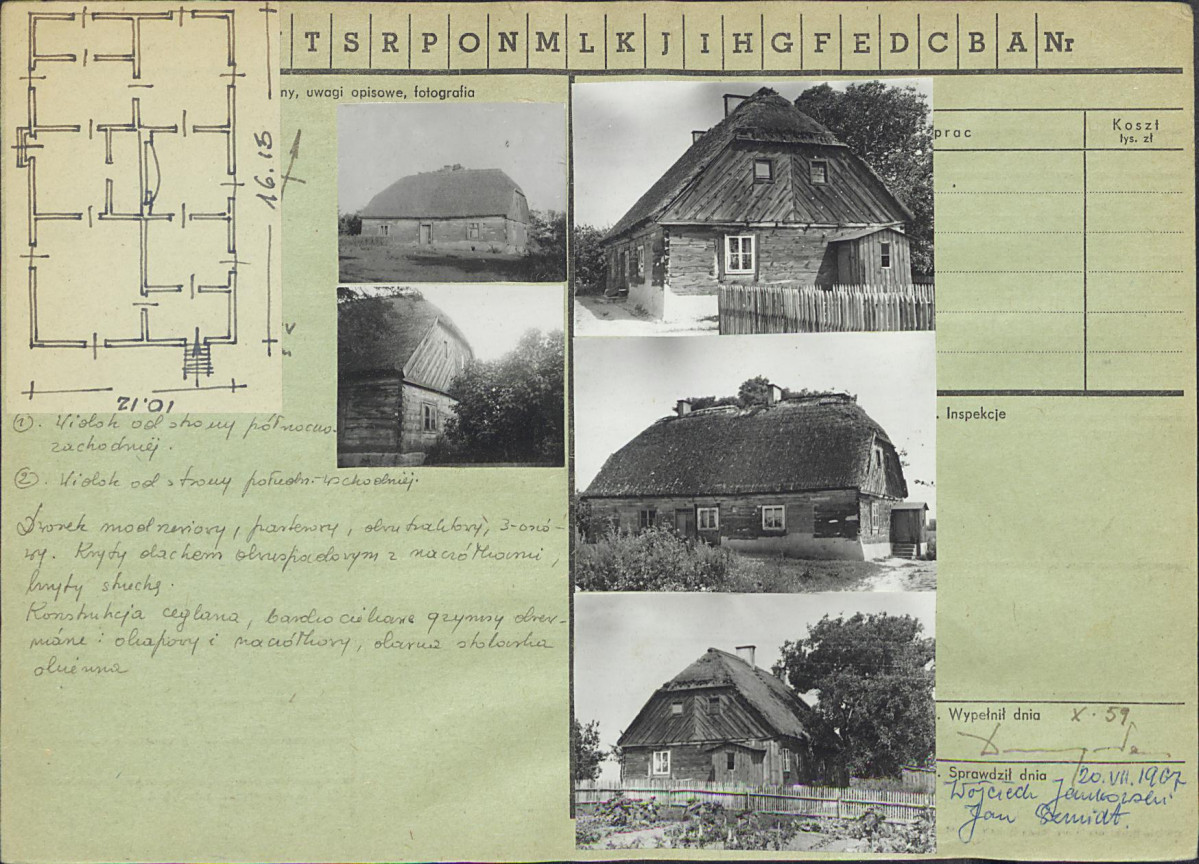 T S R P O N M L K J I H G F E D C B A Nr
ny, uwagi opisowe, fotografia
prac
Koszt
tys. zł
16.15
10.12
①. Widok od strony północno-
zachodniej.
②. Widok od strony połudn.-wschodniej.
Dworek modrzewiowy, parterowy, dwutraktowy, 3-osio-
wy. Kryty dachem dwuspadowym z naczółkami,
kryty strzechą.
Konstrukcja ceglana, bardzo ciekawe gzymsy drew-
niane: okapowy i naczółkowy, dawna stolarka
okienna
. Inspekcje
. Wypełnił dnia X. 59
. Sprawdził dnia 20.VII.1967
Wojciech Jankowski
Jan Szmidt.